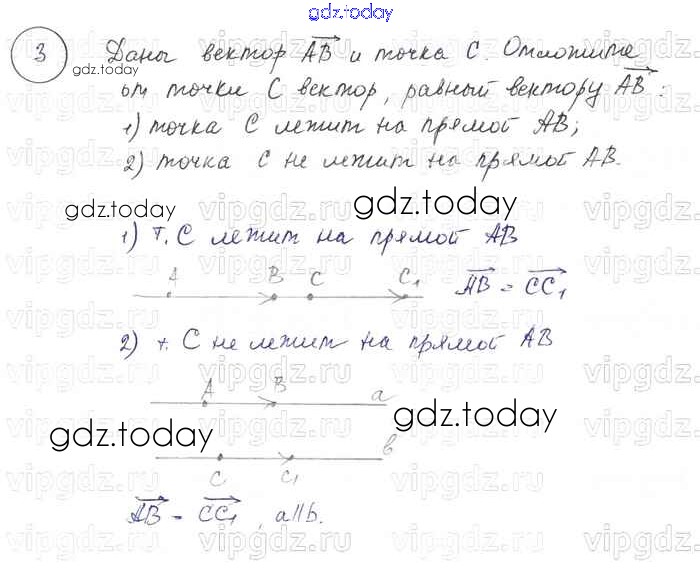 gdz.today
3 Даны вектор AB и точка C. Отложите
gdz.today
от точки C вектор, равный вектору AB:
1) точка C лежит на прямой AB;
2) точка C не лежит на прямой AB.
gdz.today gdz.today
1) т. C лежит на прямой AB
A B C C₁ AB = CC₁
2) т. C не лежит на прямой AB
A B a
gdz.today gdz.today
C C₁ b
AB = CC₁, a||b.
vipgdz.ru